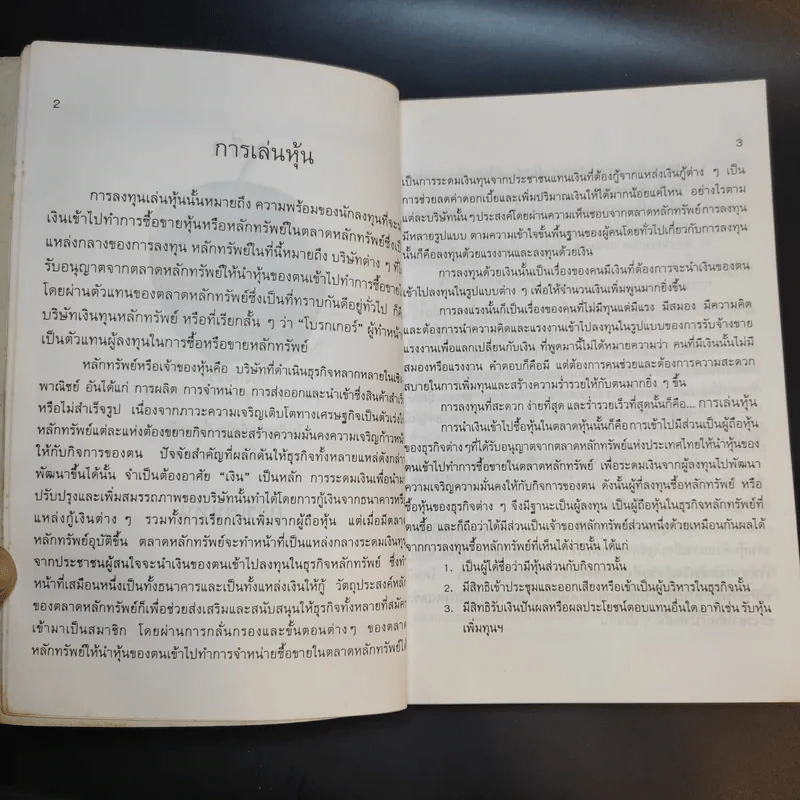 2
การเล่นหุ้น
การลงทุนเล่นหุ้นนั้นหมายถึง ความพร้อมของนักลงทุนที่จะ
เงินเข้าไปทำการซื้อขายหุ้นหรือหลักทรัพย์ในตลาดหลักทรัพย์ซึ่งเป็
แหล่งกลางของการลงทุน หลักทรัพย์ในที่นี้หมายถึง บริษัทต่าง ๆ ที่ไ
รับอนุญาตจากตลาดหลักทรัพย์ให้นำหุ้นของตนเข้าไปทำการซื้อขาย
โดยผ่านตัวแทนของตลาดหลักทรัพย์ซึ่งเป็นที่ทราบกันดีอยู่ทั่วไป ก็คื
บริษัทเงินทุนหลักทรัพย์ หรือที่เรียกสั้น ๆ ว่า “โบรกเกอร์” ผู้ทำหน้า
เป็นตัวแทนผู้ลงทุนในการซื้อหรือขายหลักทรัพย์
หลักทรัพย์หรือเจ้าของหุ้นคือ บริษัทที่ดำเนินธุรกิจหลากหลายในเชิง
พาณิชย์ อันได้แก่ การผลิต การจำหน่าย การส่งออกและนำเข้าซึ่งสินค้าสำเร็
หรือไม่สำเร็จรูป เนื่องจากภาวะความเจริญเติบโตทางเศรษฐกิจเป็นตัวเร่งให้
หลักทรัพย์แต่ละแห่งต้องขยายกิจการและสร้างความมั่นคงความเจริญก้าวหน้
ให้กับกิจการของตน ปัจจัยสำคัญที่ผลักดันให้ธุรกิจทั้งหลายแหล่ดังกล่า
พัฒนาขึ้นได้นั้น จำเป็นต้องอาศัย “เงิน” เป็นหลัก การระดมเงินเพื่อนำมา
ปรับปรุงและเพิ่มสมรรถภาพของบริษัทนั้นทำได้โดยการกู้เงินจากธนาคารหรือ
แหล่งกู้เงินต่าง ๆ รวมทั้งการเรียกเงินเพิ่มจากผู้ถือหุ้น แต่เมื่อมีตลาด
หลักทรัพย์อุบัติขึ้น ตลาดหลักทรัพย์จะทำหน้าที่เป็นแหล่งกลางระดมเงินทุน
จากประชาชนผู้สนใจจะนำเงินของตนเข้าไปลงทุนในธุรกิจหลักทรัพย์ ซึ่งทำ
หน้าที่เสมือนหนึ่งเป็นทั้งธนาคารและเป็นทั้งแหล่งเงินให้กู้ วัตถุประสงค์หลัก
ของตลาดหลักทรัพย์ก็เพื่อช่วยส่งเสริมและสนับสนุนให้ธุรกิจทั้งหลายที่สมัคร
เข้ามาเป็นสมาชิก โดยผ่านการกลั่นกรองและขั้นตอนต่างๆ ของตลาด
หลักทรัพย์ให้นำหุ้นของตนเข้าไปทำการจำหน่ายซื้อขายในตลาดหลักทรัพย์ได้
3
เป็นการระดมเงินทุนจากประชาชนแทนเงินที่ต้องกู้จากแหล่งเงินกู้ต่าง ๆ เป็น
การช่วยลดค่าดอกเบี้ยและเพิ่มปริมาณเงินให้ได้มากน้อยแค่ไหน อย่างไรตาม
แต่ละบริษัทนั้นๆประสงค์โดยผ่านความเห็นชอบจากตลาดหลักทรัพย์ การลงทุน
มีหลายรูปแบบ ตามความเข้าใจขั้นพื้นฐานของผู้คนโดยทั่วไปเกี่ยวกับการลงทุน
นั้นก็คือลงทุนด้วยแรงงานและลงทุนด้วยเงิน
การลงทุนด้วยเงินนั้นเป็นเรื่องของคนมีเงินที่ต้องการจะนำเงินของตน
เข้าไปลงทุนในรูปแบบต่าง ๆ เพื่อให้จำนวนเงินเพิ่มพูนมากยิ่งขึ้น
การลงแรงนั้นก็เป็นเรื่องของคนที่ไม่มีทุนแต่มีแรง มีสมอง มีความคิด
และต้องการนำความคิดและแรงงานเข้าไปลงทุนในรูปแบบของการรับจ้างขาย
แรงงานเพื่อแลกเปลี่ยนกับเงิน ที่พูดมานี้ไม่ได้หมายความว่า คนที่มีเงินนั้นไม่มี
สมองหรือแรงงาน คำตอบก็คือมี แต่ต้องการคนช่วยและต้องการความสะดวก
สบายในการเพิ่มทุนและสร้างความร่ำรวยให้กับตนมากยิ่ง ๆ ขึ้น
การลงทุนที่สะดวก ง่ายที่สุด และร่ำรวยเร็วที่สุดนั้นก็คือ... การเล่นหุ้น
การนำเงินเข้าไปซื้อหุ้นในตลาดหุ้นนั้นก็คือการเข้าไปมีส่วนเป็นผู้ถือหุ้น
ของธุรกิจต่างๆที่ได้รับอนุญาตจากตลาดหลักทรัพย์แห่งประเทศไทยให้นำหุ้นของ
ตนเข้าไปทำการซื้อขายในตลาดหลักทรัพย์ เพื่อระดมเงินจากผู้ลงทุนไปพัฒนา
ความเจริญความมั่นคงให้กับกิจการของตน ดังนั้นผู้ที่ลงทุนซื้อหลักทรัพย์ หรือ
ซื้อหุ้นของธุรกิจต่าง ๆ จึงมีฐานะเป็นผู้ลงทุน เป็นผู้ถือหุ้นในธุรกิจหลักทรัพย์ที่
ตนซื้อ และก็ถือว่าได้มีส่วนเป็นเจ้าของหลักทรัพย์ส่วนหนึ่งด้วยเหมือนกันผลได้
จากการลงทุนซื้อหลักทรัพย์ที่เห็นได้ง่ายนั้น ได้แก่
1. เป็นผู้ได้ชื่อว่ามีหุ้นส่วนกับกิจการนั้น
2. มีสิทธิเข้าประชุมและออกเสียงหรือเข้าเป็นผู้บริหารในธุรกิจนั้น
3. มีสิทธิรับเงินปันผลหรือผลประโยชน์ตอบแทนอื่นใด อาทิเช่น รับหุ้น
เพิ่มทุนฯ